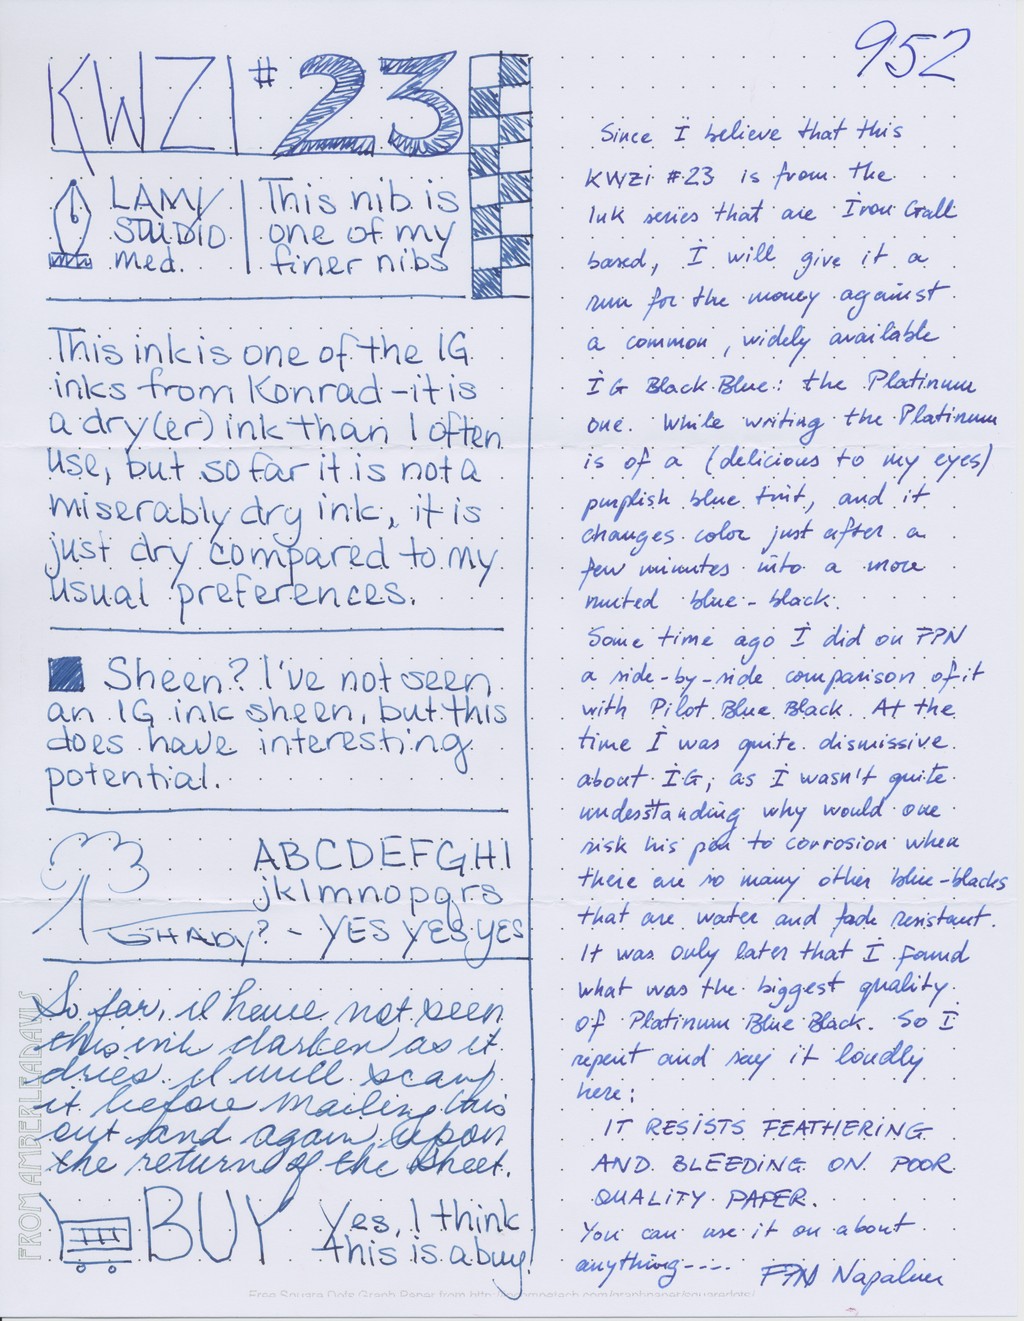 KWZI #23
LAMY
STUDIO
med.
This nib is
one of my
finer nibs
This ink is one of the IG
inks from Konrad - it is
a dry(er) ink than I often
use, but so far it is not a
miserably dry ink, it is
just dry compared to my
usual preferences.
Sheen? I've not seen
an IG ink sheen, but this
does have interesting
potential.
ABCDEFGHI
jklmnopqrs
SHADY? - YES YES YES
So far, I have not seen
this ink darken as it
dries. I will scan
it before mailing this
out and again, upon
the return of the sheet.
BUY
Yes, I think
this is a buy!
FROM AMBERLEADAVIS
952
Since I believe that this
KWZI #23 is from the
Ink series that are Iron Gall
based, I will give it a
run for the money against
a common, widely available
IG Black Blue: the Platinum
one. While writing the Platinum
is of a (delicious to my eyes)
purplish blue tint, and it
changes color just after a
few minutes into a more
muted blue-black.
Some time ago I did on FPN
a side-by-side comparison of it
with Pilot Blue Black. At the
time I was quite dismissive
about IG, as I wasn't quite
understanding why would one
risk his pen to corrosion when
there are so many other blue-blacks
that are water and fade resistant.
It was only later that I found
what was the biggest quality
of Platinum Blue Black. So I
repent and say it loudly
here:
IT RESISTS FEATHERING
AND BLEEDING ON POOR
QUALITY PAPER.
You can use it on about
anything----
FPN Napalm
Free Square Dots Graph Paper from http://incompetech.com/graphpaper/squaredots/